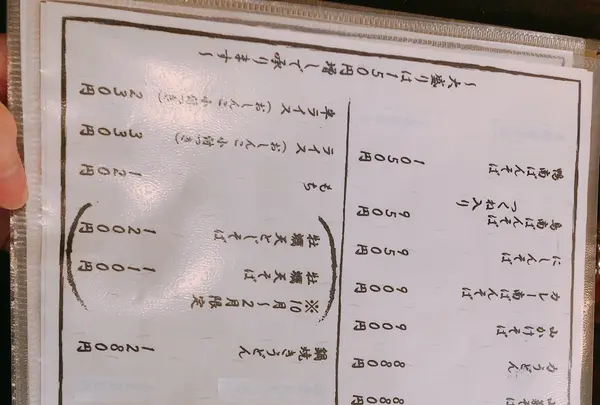 山菜そば 880円
力うどん 880円
山かけそば 900円
カレー南ばんそば 900円
にしんそば 950円
鳥南ばんそば 950円
つくね入り
鴨南ばんそば 1050円
鍋焼きうどん 1280円
※10月〜2月限定
牡蠣天そば 1100円
牡蠣天とじそば 1200円
もち 120円
ライス(おしんこ小付つき) 330円
半ライス(おしんこ小付つき) 230円
〜大盛りは150円増しで承ります〜